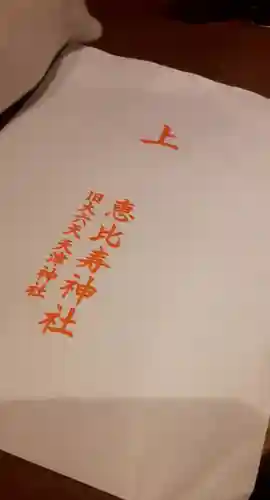 上
恵比寿神社
旧大六天 天津神社